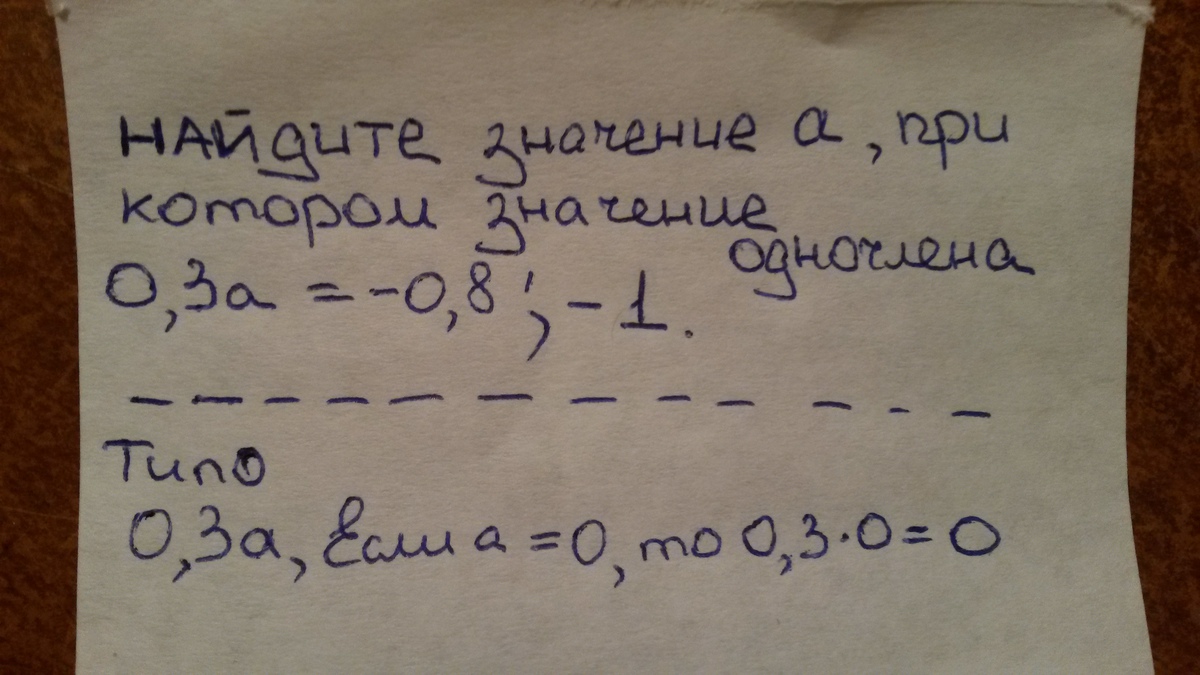 НАЙДИТЕ значение а, при
котором значение
одночлена
0,3а = -0,8 ; -1.
Типо
0,3а, Если а = 0, то 0,3·0=0